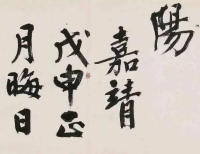 陽
嘉靖
戊申正
月晦日